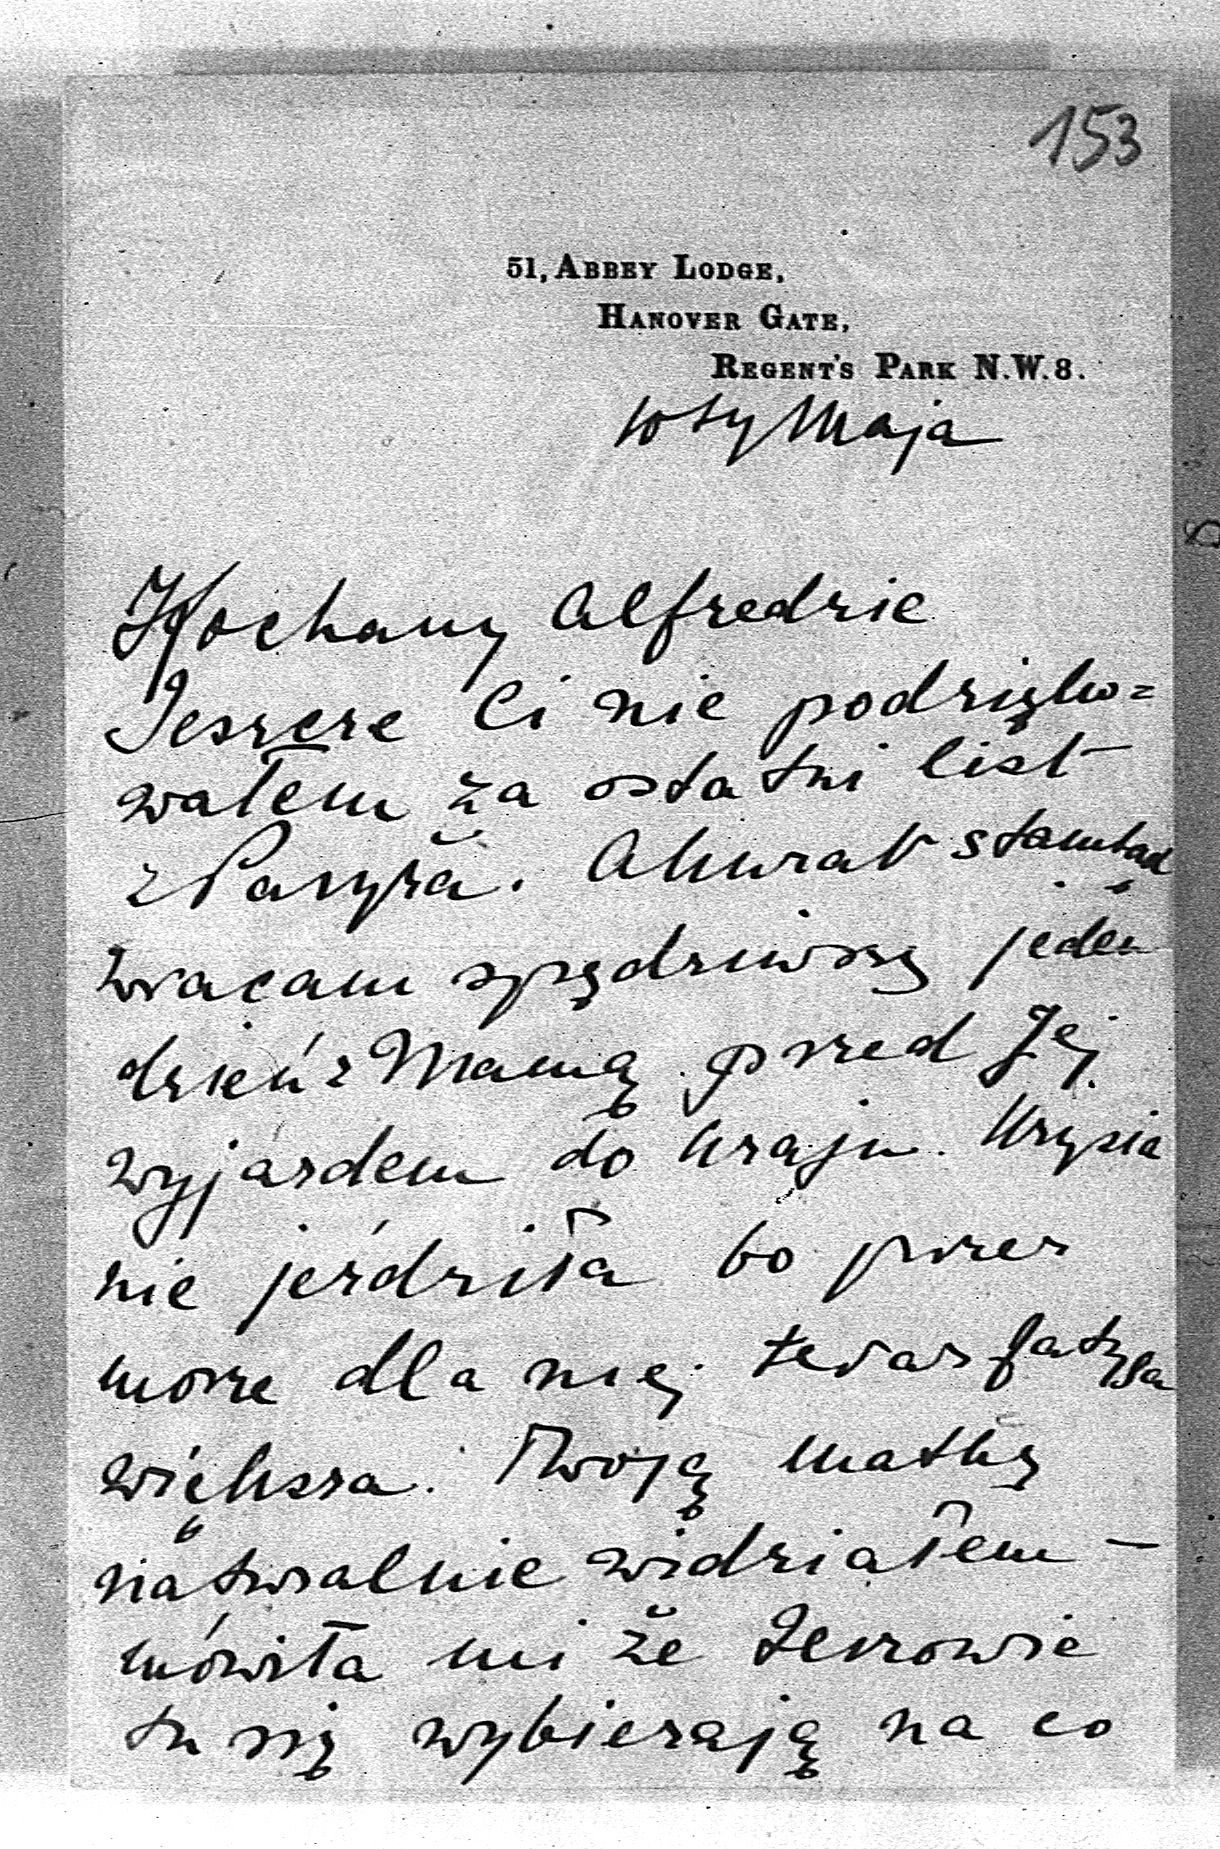 153
51, Abbey Lodge,
Hanover Gate,
Regent's Park N.W.8.
10ty Maja
Kochany Alfredzie
Jeszcze Ci nie podzięko=
wałem za ostatni list
z Paryża. Akurat stamtąd
wracam spędziwszy jeden
dzień z Mamą przed Jej
wyjazdem do kraju. Krysia
nie jeździła bo przez
morze dla niej teraz fatyga
większa. Twoją matkę
naturalnie widziałem —
mówiła mi że
tu się wybierają na co